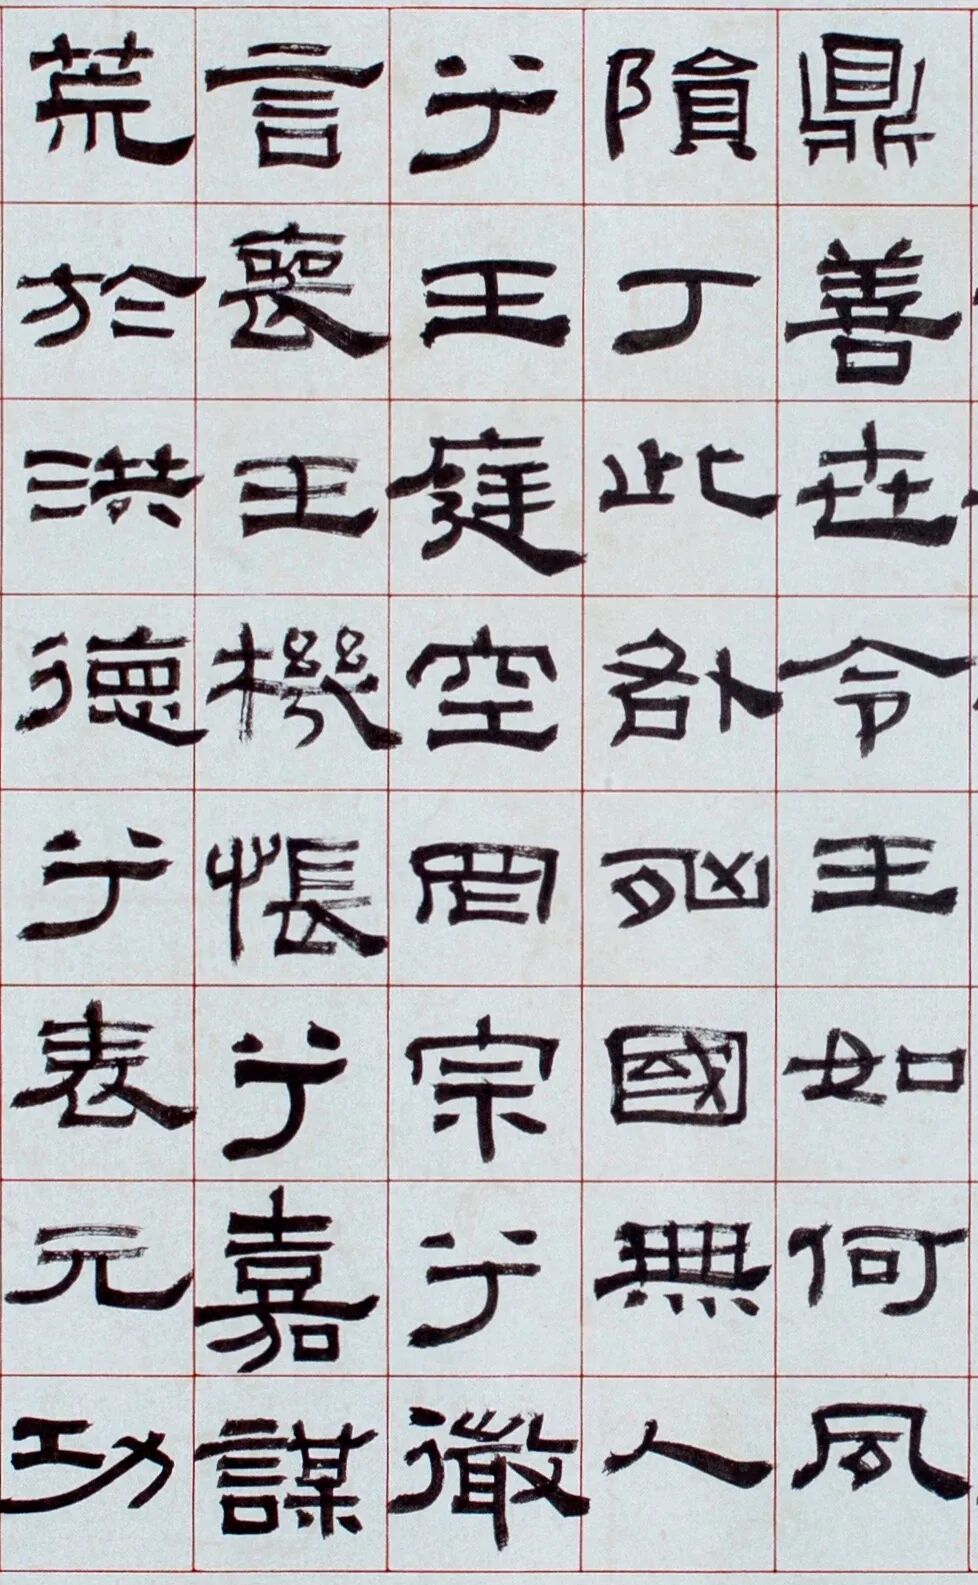 鼎善世令王如何風
隕丁此咎凶國無人
兮王庭空罔宗兮微
言喪王機悵兮嘉謀
荒於洪德兮表元功